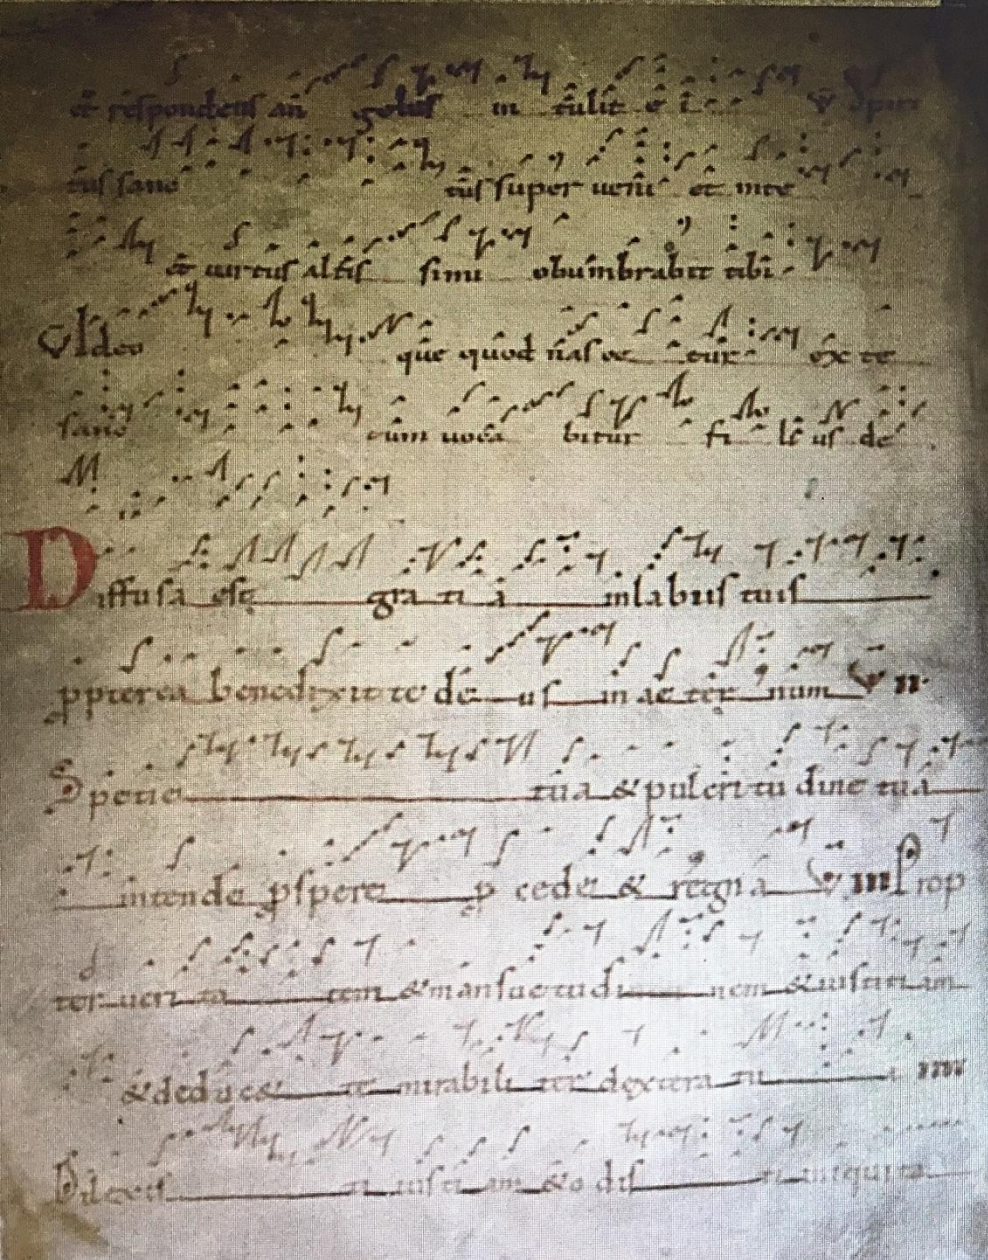 et respondens an gelus in tulit e i
tus sanc tus super ueni et inte
et uirtus altis simi obumbrabit tibi
Ideo que quod nas ce tur ex te
sanc tum uoca bitur fi us de
Diffusa est gra ti a in labiis tuis
ppterea benedixit te de us in ae ter num
Specie tua & pulcri tu dine tua
intende pspere p cede & regna
ter ueri ta tem & mansue tu di nem & iusticiam
& deduc& te mirabili ter dextera tu
Dilexis ti iusti am & o dis ti iniquita